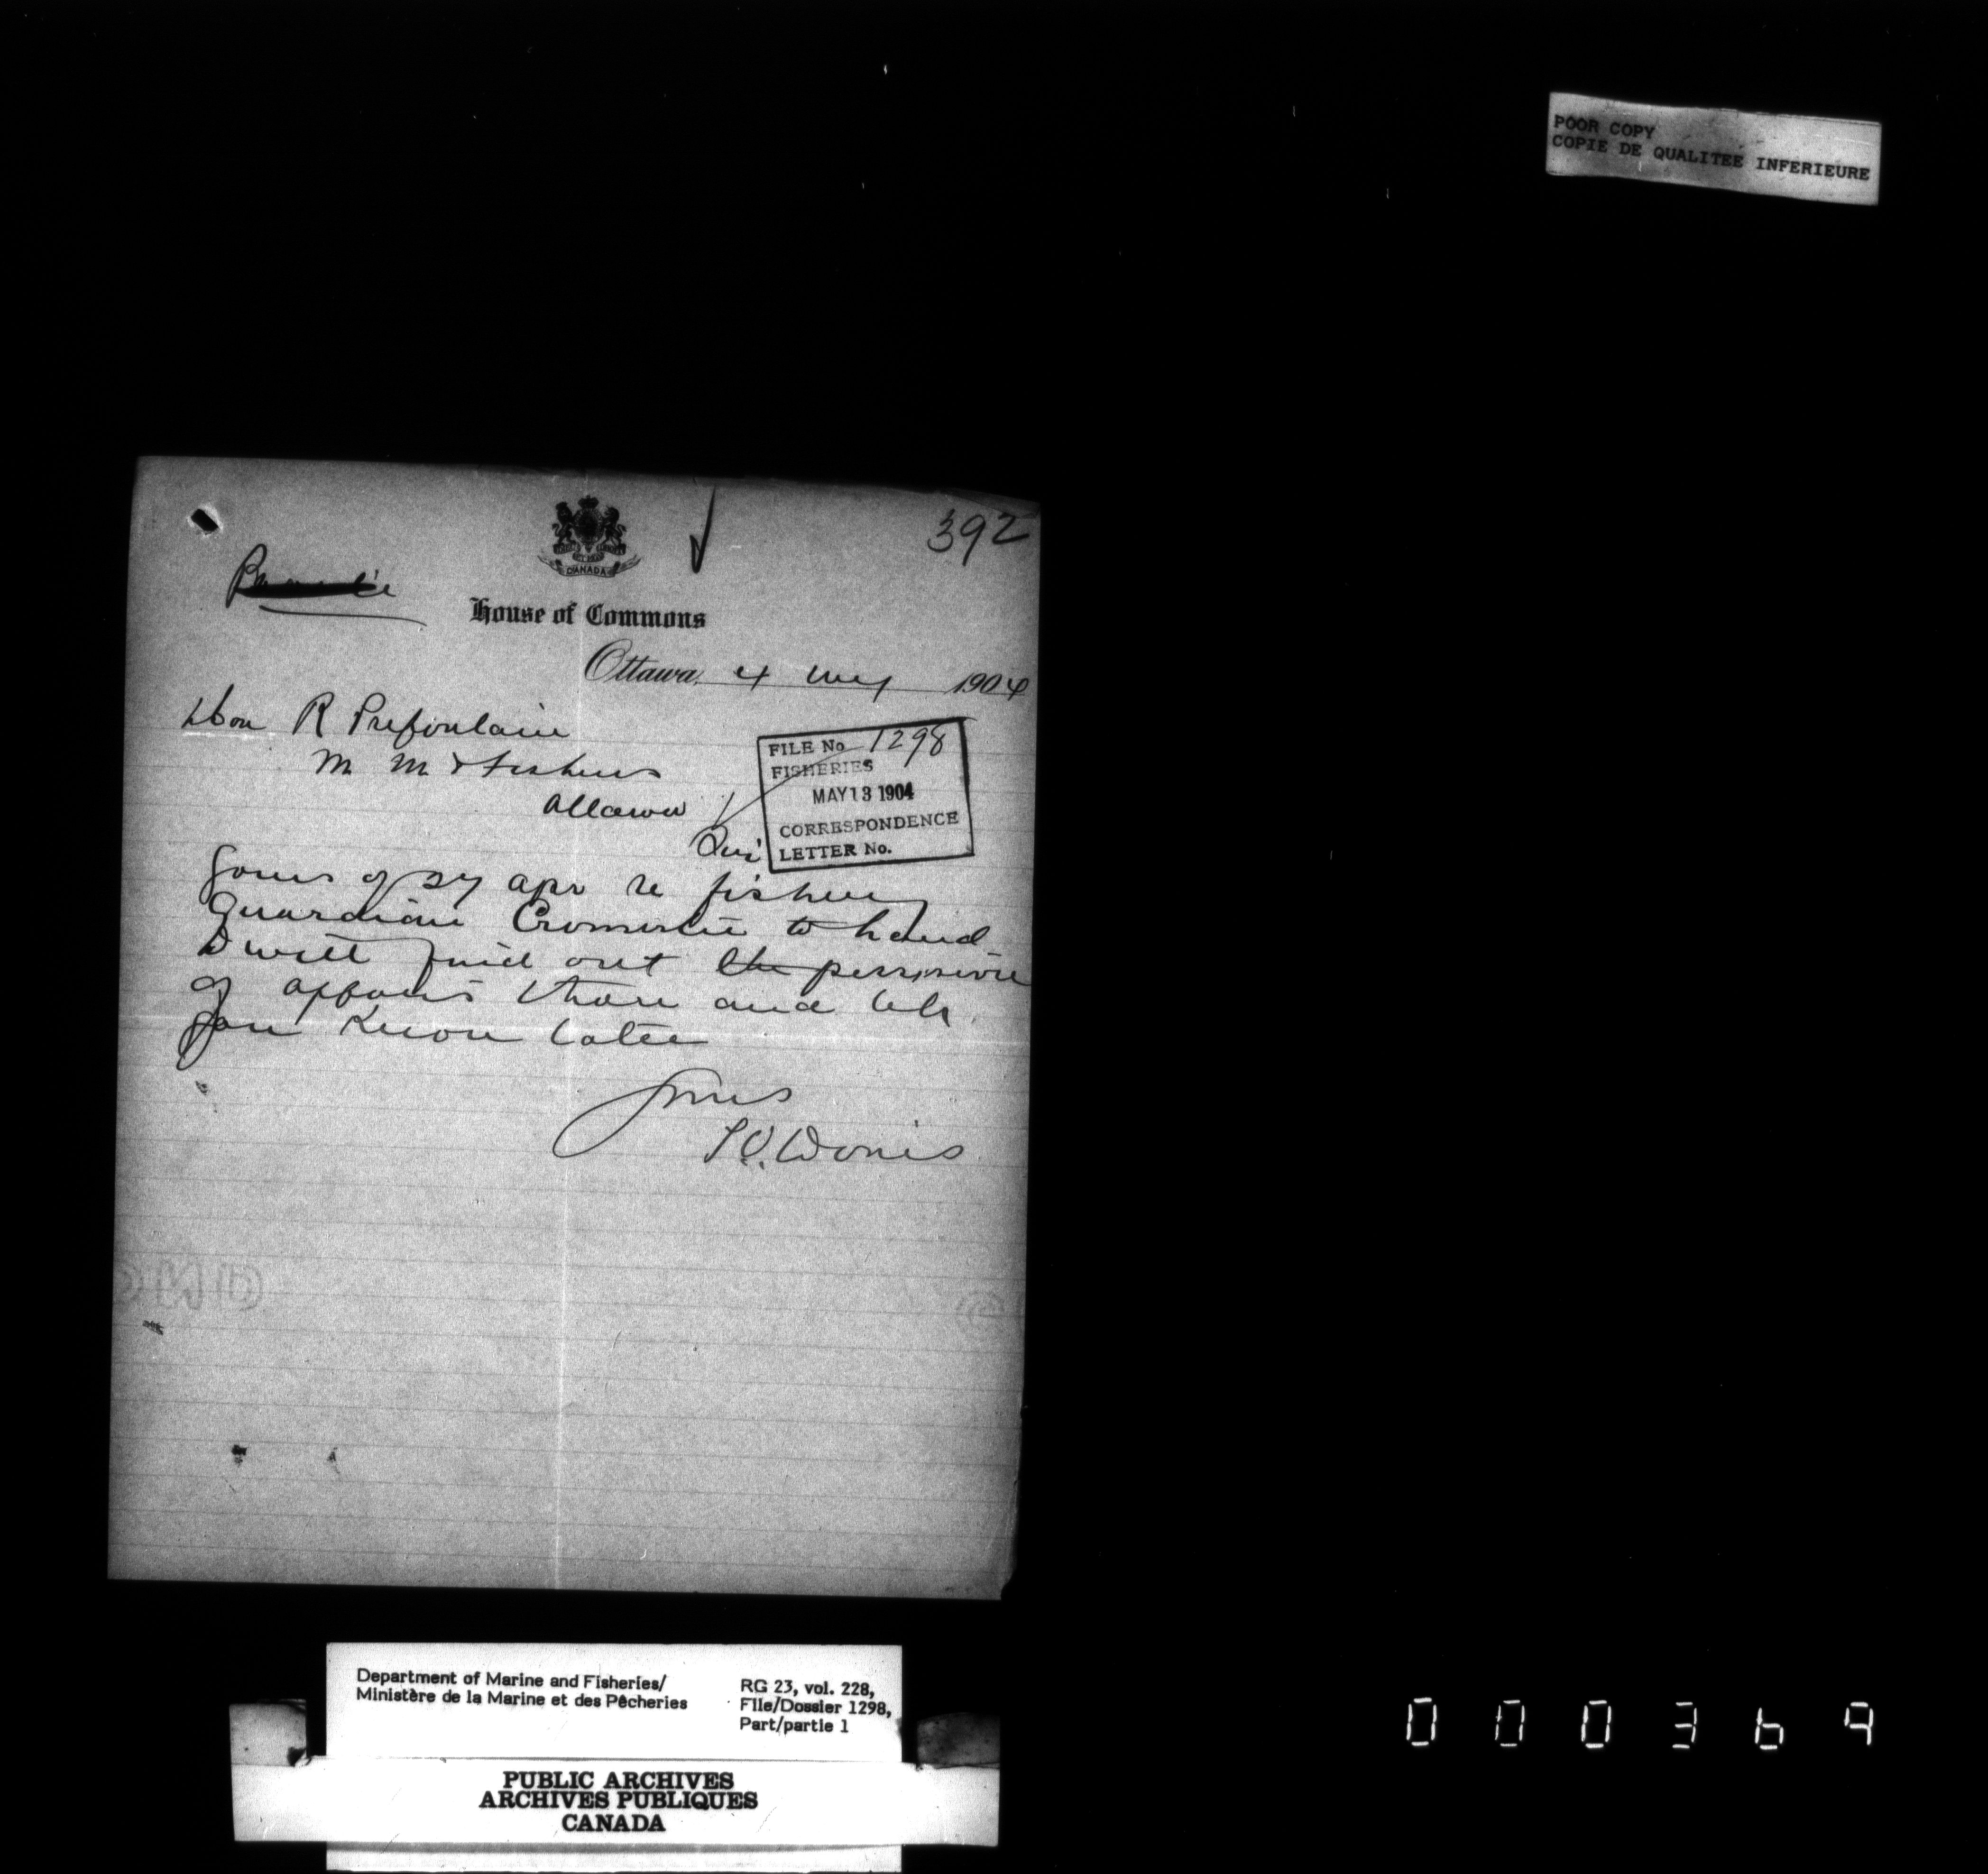 POOR COPY
COPIE DE QUALITEE INFERIEURE
392
CANADA
House of Commons
Ottawa, 4 May 1904
Hon R Prefontaine
M M & Fisheries
Ottawa
FILE No 1298
FISHERIES
MAY 13 1904
CORRESPONDENCE
LETTER No.
Yours of 27 Apr re fishery
Guardian to hand
I will find out the
of affairs there and let
you know later
Yours
T.O. Davis
Department of Marine and Fisheries/
Ministère de la Marine et des Pêcheries
RG 23, vol. 228,
File/Dossier 1298,
Part/partie 1
PUBLIC ARCHIVES
ARCHIVES PUBLIQUES
CANADA
000369